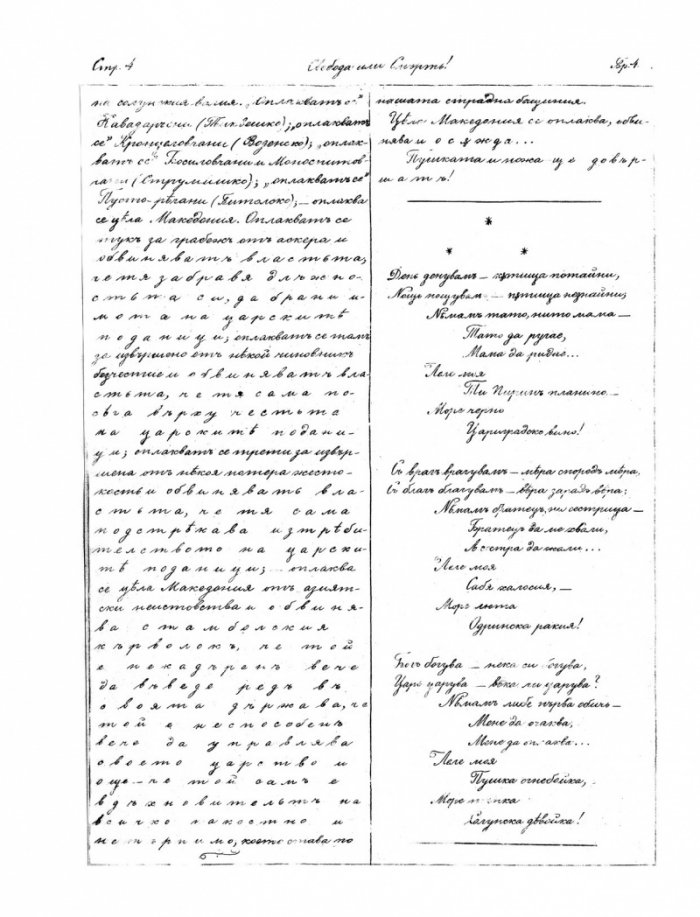 Стр. 4
Свобода или Смърть!
Бр. 4
на солунския валия. „Оплакватъ се"
Кавадарчени (Тиквешко); „оплакватъ
се" Кронцеловчани (Воденско); „оплак-
ватъ се" Босиловчани и Моноспитов-
чани (Струмишко); „оплакватъ се"
Пусто-рѣчани (Битолско); — оплаква
се цѣла Македония. Оплакватъ се
тукъ за грабежъ отъ аскера и
обвиняватъ властьта,
че тя забравя длъжно-
стьта си, да брани и-
мота на царскитѣ
поданици; оплакватъ се тамъ
за извършено отъ нѣкой чиновникъ
безчестие и обвиняватъ вла-
стьта, че тя сама по-
сѣга върху честьта
на царскитѣ подани-
ци; оплакватъ се трети за извър-
шена отъ нѣкоя потера жесто-
кость и обвиняватъ вла-
стьта, че тя сама
подстрѣкава изтрѣби-
телството на царски-
тѣ поданици; — оплаква
се цѣла Македония отъ азият-
ски неистовства и обвиня-
ва стамболския
кърволокъ, че той
е некадъренъ вече
да въведе редъ въ
своята държава, че
той е неспособенъ
вече да управлява
своето царство и
още — че той самъ е
вдъхновительтъ на
всичко гнкостно и
нетърпимо, което става по
нашата страдна бащиния.
Цѣла Македония се оплаква, обви-
нява и осужда...
Пушката и ножа ще довър-
шатъ!
*
* *
День денувамъ — кѫтища потайни,
Нощь нощувам — пѫтища незнайни;
Нѣмамъ тато, нито мама —
Тато да ругае,
Мама да ридае...
Леге моя
Ти Пиринъ планино —
Море черно
Цариградско вино!
Съ врагъ врагувамъ — мѣра спородъ мѣра,
Съ благъ благувамъ — вѣра зарадъ вѣра;
Нѣмамъ братецъ, ни сестрица —
Братецъ да ме жали,
А сестра да жали...
Леге моя
Сабя халосия, —
Море люта
Одринска ракия!
Богъ богува — нека си богува,
Царь царува — вѣка ли царува?
Нѣмамъ либе първа обичь —
Мене да очаква,
Мене да оплаква...
Леге моя
Пушка огнебойка, —
Море
Солунска дѣвойка!